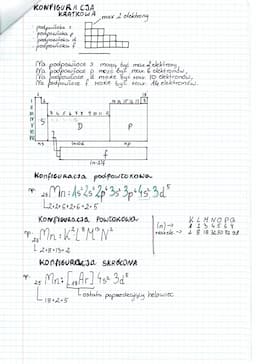 KONFIGURACJA
KLATKOWA
max 2 elektrony
podpowłoka s
podpowłoka p
podpowłoka d
podpowłoka f
Na podpowłoce s może być max 2 elektrony,
Na podpowłoce p może być max 6 elektronów,
Na podpowłoce d może być max 10 elektronów,
Na podpowłoce f może być max 14 elektronów.
S
D
P
f
Konfiguracja podpowłokowa
np. 25Mn: 1s² 2s² 2p⁶ 3s² 3p⁶ 4s² 3d⁵
2+2+6+2+6+2+5
KONFIGURACJA POWŁOKOWA
K L M N O P Q
(n)→ 1 2 3 4 5 6 7
np. 25Mn: K² L⁸ M¹³ N²
2+8+13+2
KONFIGURACJA SKRÓCONA
np. 25Mn: [18Ar] 4s² 3d⁵
ostatni poprzedzający helowiec
18+2+5